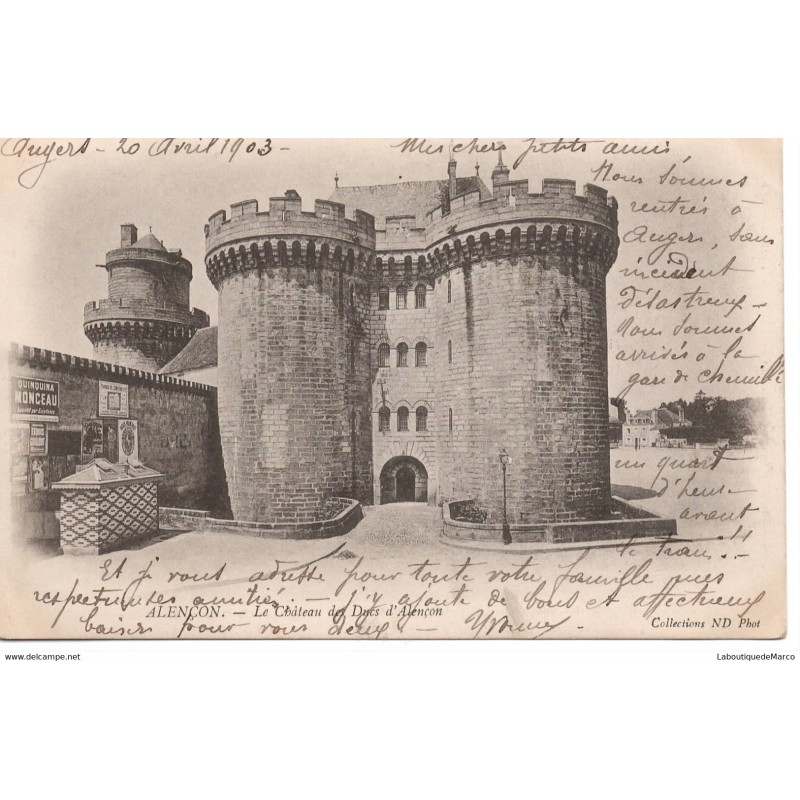 Angers - 20 Avril 1903 -
Mes chers petits amis
Nous sommes
rentrés à
Angers, sans
incident
désastreux -
Nous sommes
arrivés à la
gare de Chemillé
un quart
d'heure
avant
le train!!
QUINQUINA
MONCEAU
Et je vous adresse pour toute votre famille mes
respectueuses amitiés - j'y ajoute de bons et affectueux
baisers pour vous deux - Yvonne
ALENÇON. - Le Château des Ducs d'Alençon
Collections ND Phot
www.delcampe.net
LaboutiquedeMarco